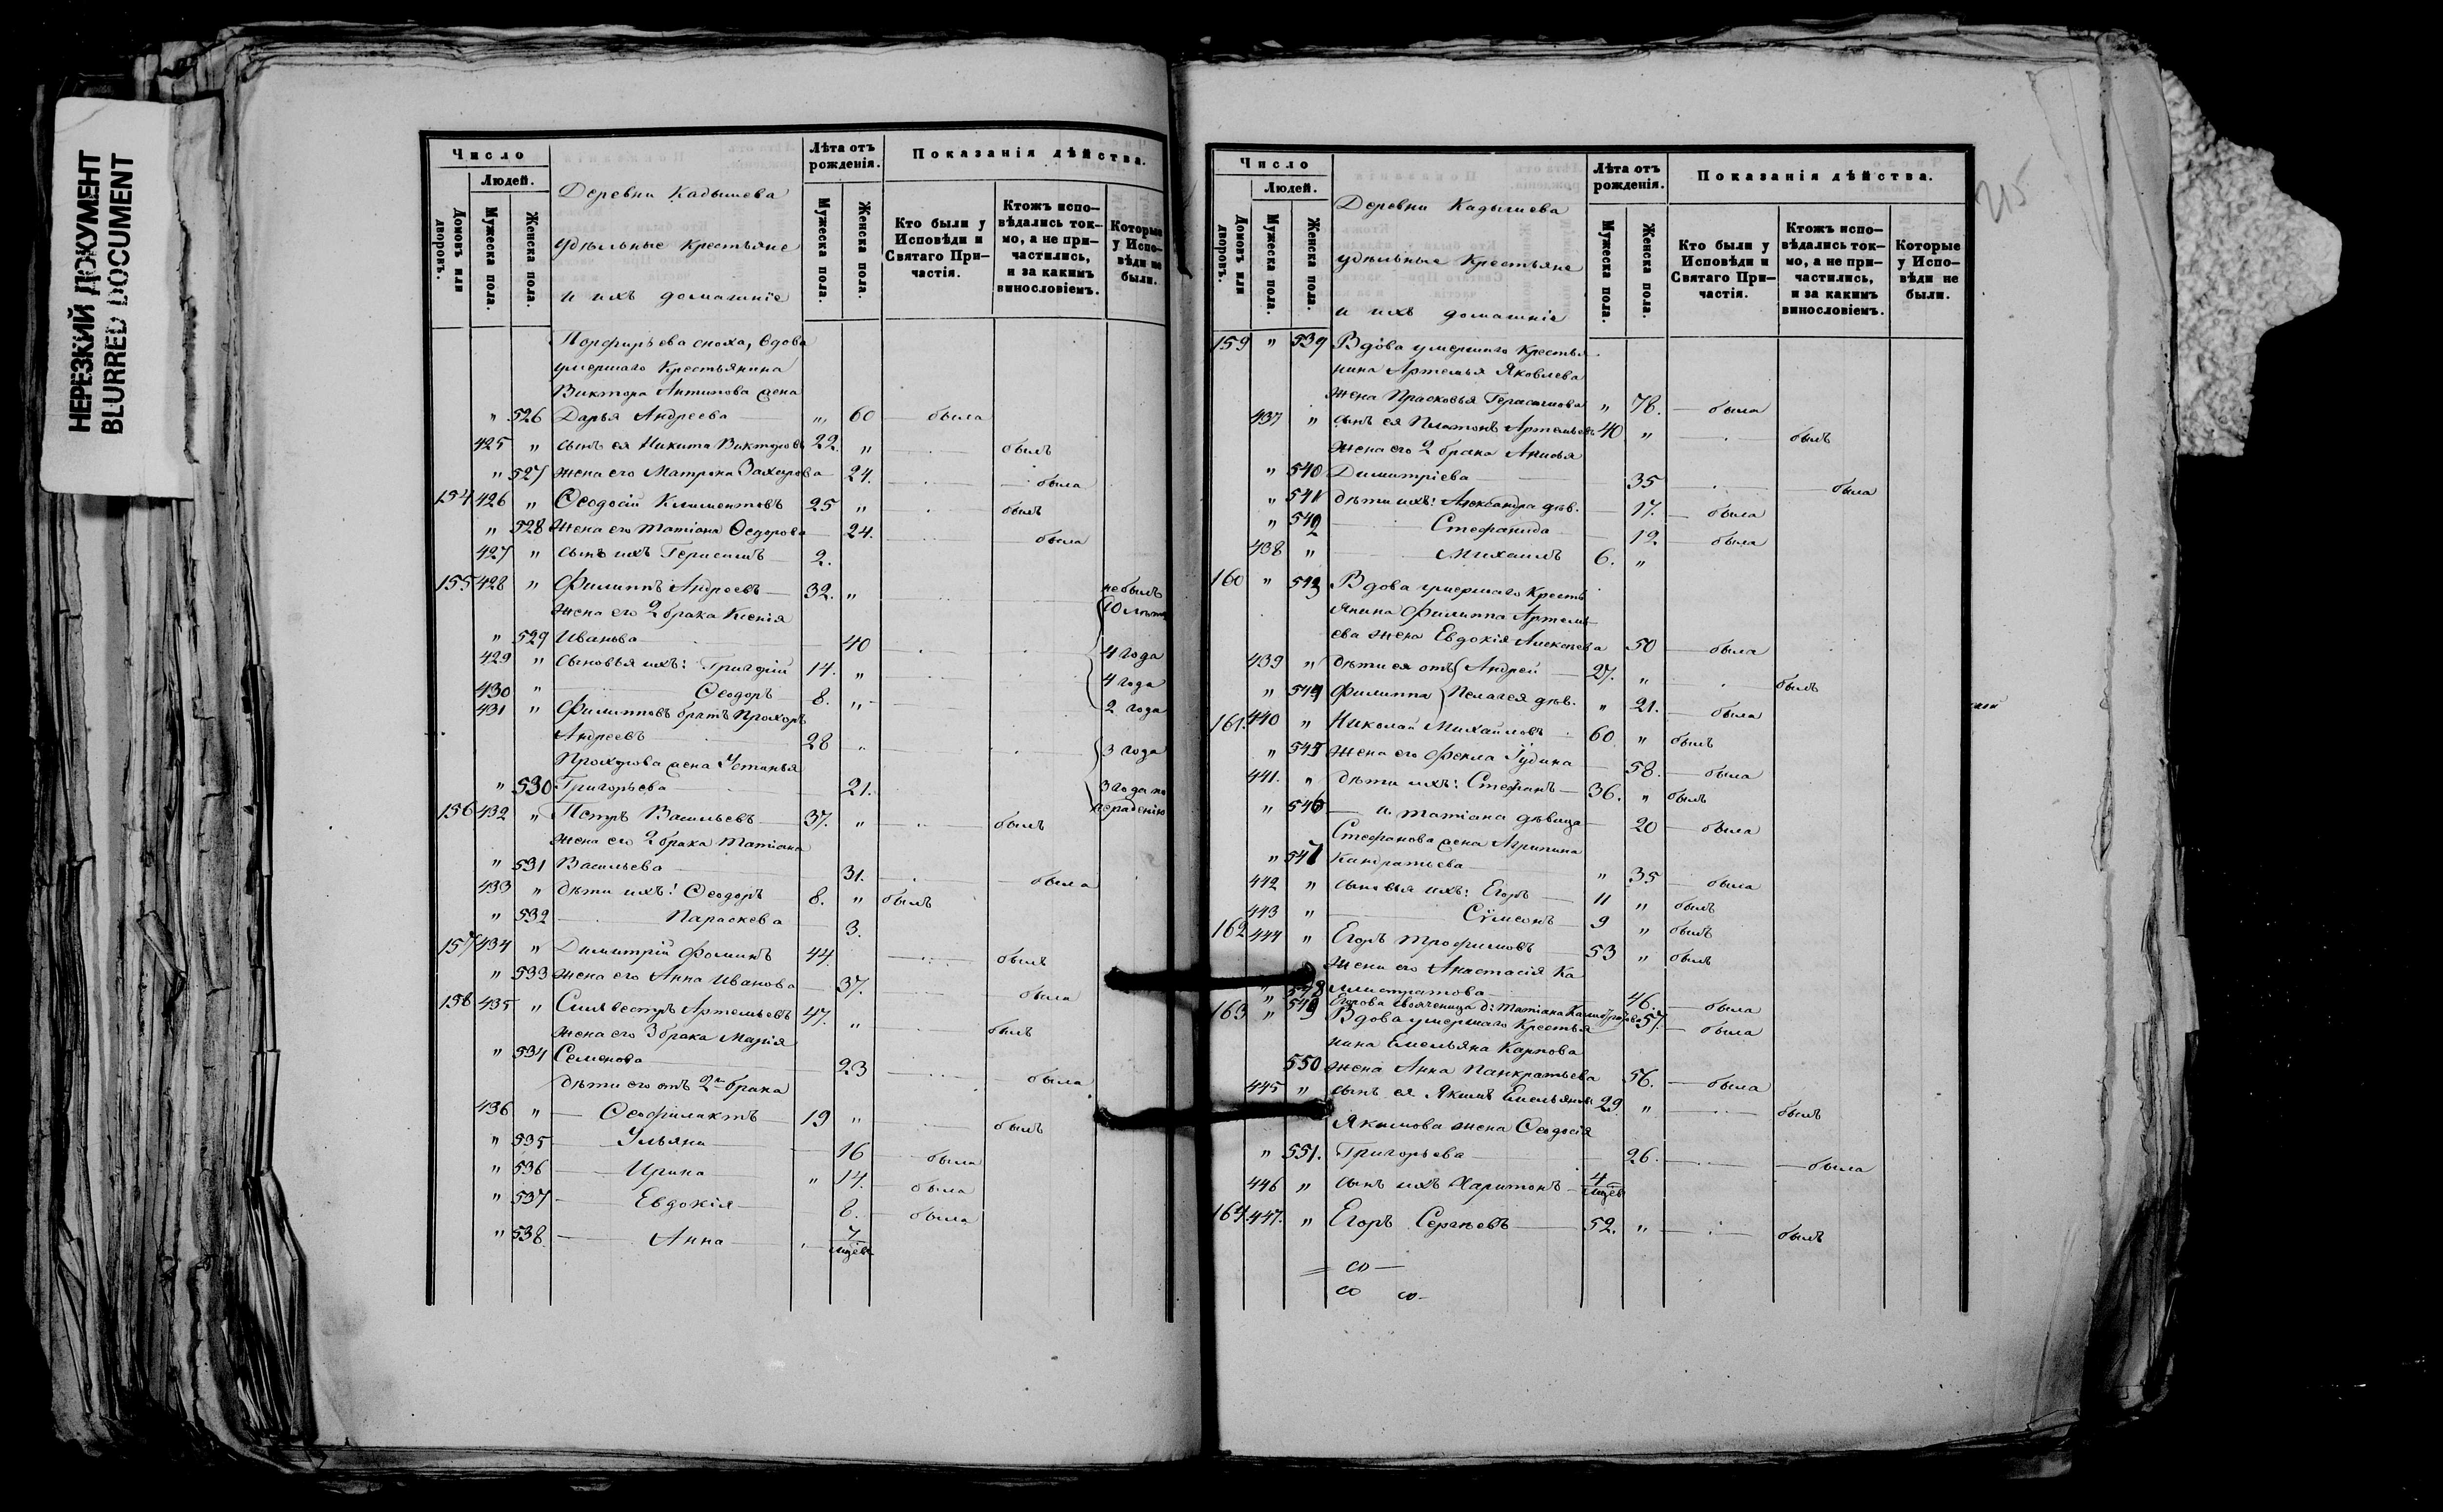 НЕРЕЗКИЙ ДОКУМЕНТ
BLURRED DOCUMENT
Число
Людей.
Домовъ или дворовъ.
Мужеска пола.
Женска пола.
Деревни Кадышева
удѣльные крестьяне
и ихъ домашніе
Лѣта отъ рожденія.
Мужеска пола.
Женска пола.
Показанія дѣйства.
Кто были у Исповѣди и Святаго Причастія.
Ктожъ исповѣдались токмо, а не причастились, и за какимъ винословіемъ.
Которые у Исповѣди не были.
Порфирьева сноха, вдова
умершаго Крестьянина
Виктора Антипова жена
" 526 Дарья Андреева " 60 была
425 " сынъ ея Никита Викторовъ 22. " былъ
" 527 жена его Матрона Захарова 24. была
154 426 " Ѳеодосій Климентовъ 25 " былъ
" 528 Жена его Татіана Ѳедорова 24. была
427 " сынъ ихъ Герасимъ 2.
155 428 " Филиппъ Андреевъ 32. " небылъ 10 лѣтъ
жена его 2 брака Ксенія
" 529 Иванова 40 4 года
429 " сыновья ихъ: Григорій 14. " 4 года
430 " Ѳеодоръ 8. " 2 года
431 " Филипповъ братъ Прохоръ
Андреевъ 28 " 3 года
Прохорова жена Устинья
" 530 Григорьева 21. 3 года по
нерадѣнію
156 432 " Петръ Васильевъ 37. " былъ
жена его 2 брака Татіана
" 531 Васильева 31. была
433 " дѣти ихъ: Ѳеодоръ 8. " былъ
" 532 Параскева 3.
157 434 " Димитрій Фоминъ 44. былъ
" 533 жена его Анна Иванова 37. была
158 435 " Сильвестръ Артемьевъ 47. " былъ
жена его 3 брака Марія
" 534 Семенова 23 была
дѣти его отъ 2го брака
436 " Ѳеофилактъ 19 " былъ
" 535 Ульяна 16 была
" 536 Ирина " 14. была
" 537 Евдокія 8. была
" 538 Анна 7 мцѣв
215
Число
Людей.
Домовъ или дворовъ.
Мужеска пола.
Женска пола.
Деревни Кадышева
удѣльные Крестьяне
и ихъ домашніе
Лѣта отъ рожденія.
Мужеска пола.
Женска пола.
Показанія дѣйства.
Кто были у Исповѣди и Святаго Причастія.
Ктожъ исповѣдались токмо, а не причастились, и за какимъ винословіемъ.
Которые у Исповѣди не были.
159 " 539 Вдова умершаго Крестья
нина Артемья Яковлева
жена Прасковья Герасимова " 78. была
437 " сынъ ея Платонъ Артемьевъ 40 " былъ
жена его 2 брака Анисья
" 540 Димитріева 35 была
" 541 дѣти ихъ: Александра дѣв. 17. была
" 542 Стефанида 12 была
438 " Михаилъ 6. "
160 " 543 Вдова умершаго Кресть
янина Филиппа Артемь
ева жена Евдокія Алексѣева 50 была
439 " дѣти ея отъ Андрей 27. " былъ
" 544 Филиппа Пелагея дѣв. " 21. была
161. 440 " Николай Михайловъ 60 " былъ
" 545 Жена его Фекла Іудина 58. была
441. " дѣти ихъ: Стефанъ 36. " былъ
" 546 и Татіана дѣвица 20 была
Стефанова жена Агрипина
" 547 Кандратьева " 35 была
442 " сыновья ихъ: Егоръ 11 " былъ
443 " Сѵмеонъ 9 " былъ
162 444 " Егоръ Трофимовъ 53 " былъ
жена его Анастасія Ка
" 548 листратова 46. была
" 549 Егорова свояченица д: Татіана Калистратова 57. была
163 " Вдова умершаго Крестья
нина Емельяна Карпова
550 жена Анна Панкратьева 56. была
445 " сынъ ея Якимъ Емельяновъ 29. " былъ
Якимова жена Ѳеодосія
" 551. Григорьева 26. была
446 " сынъ ихъ Харитонъ 4 мцѣв
164. 447. " Егоръ Сергѣевъ 52. " былъ